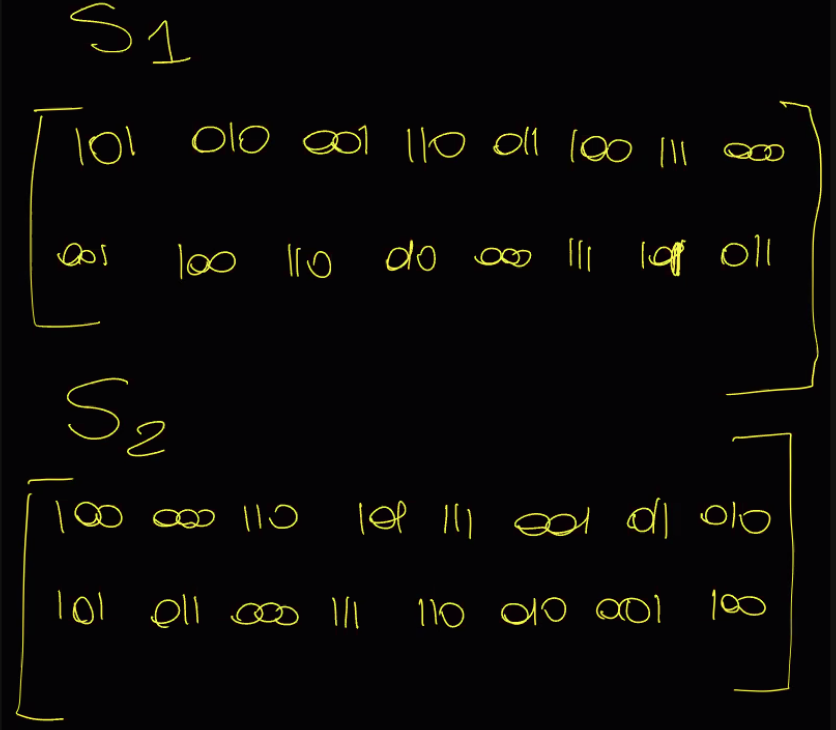 S1
101 010 001 110 011 100 111 000
001 100 110 010 000 111 101 011
S2
100 000 110 101 111 001 011 010
101 011 000 111 110 010 001 100